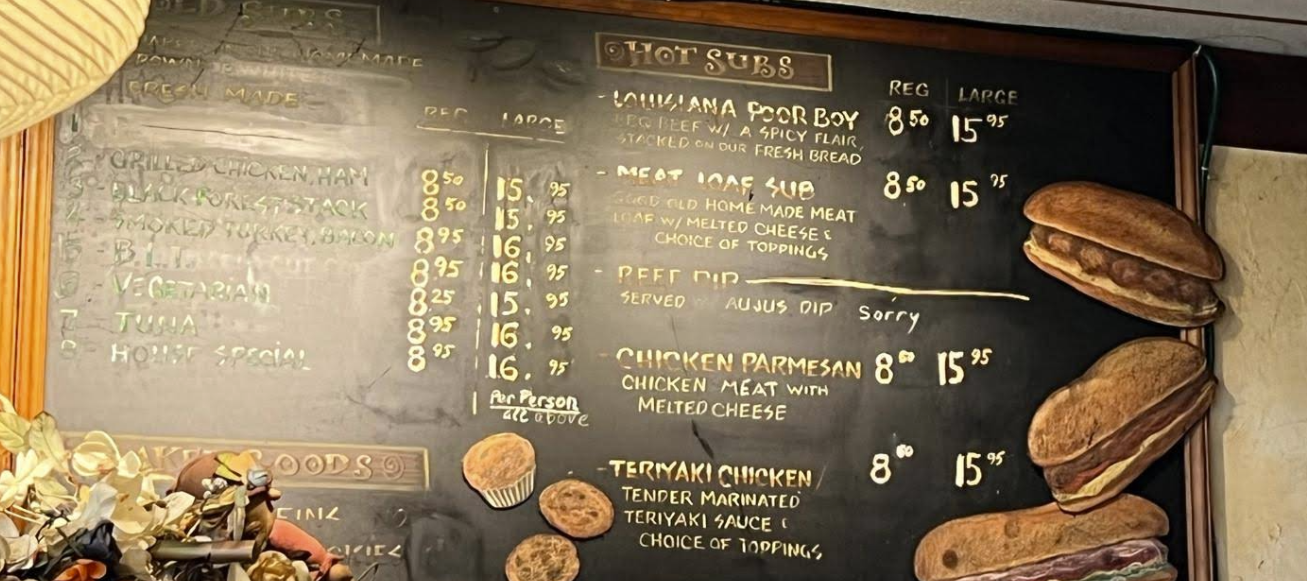 OLD SUBS
HOMEMADE
FRESH MADE
REG LARGE
2 - GRILLED CHICKEN, HAM 8 50 15. 95
3 - BLACK FOREST STACK 8 50 15. 95
4 - SMOKED TURKEY, BACON 8 95 16. 95
5 - B.L.T. 8 95 16. 95
6 - VEGETARIAN 8 25 15. 95
7 - TUNA 8 95 16. 95
8 - HOUSE SPECIAL 8 95 16. 95
Per Person
all above
AKE GOODS
HOT SUBS
REG LARGE
- LOUISIANA POOR BOY 8 50 15 95
BBQ BEEF W/ A SPICY FLAIR,
STACKED ON OUR FRESH BREAD
- MEAT LOAF SUB 8 50 15 95
GOOD OLD HOME MADE MEAT
LOAF W/ MELTED CHEESE &
CHOICE OF TOPPINGS
- BEEF DIP
SERVED AUJUS DIP Sorry
- CHICKEN PARMESAN 8 50 15 95
CHICKEN MEAT WITH
MELTED CHEESE
- TERIYAKI CHICKEN 8 15 95
TENDER MARINATED
TERIYAKI SAUCE &
CHOICE OF TOPPINGS